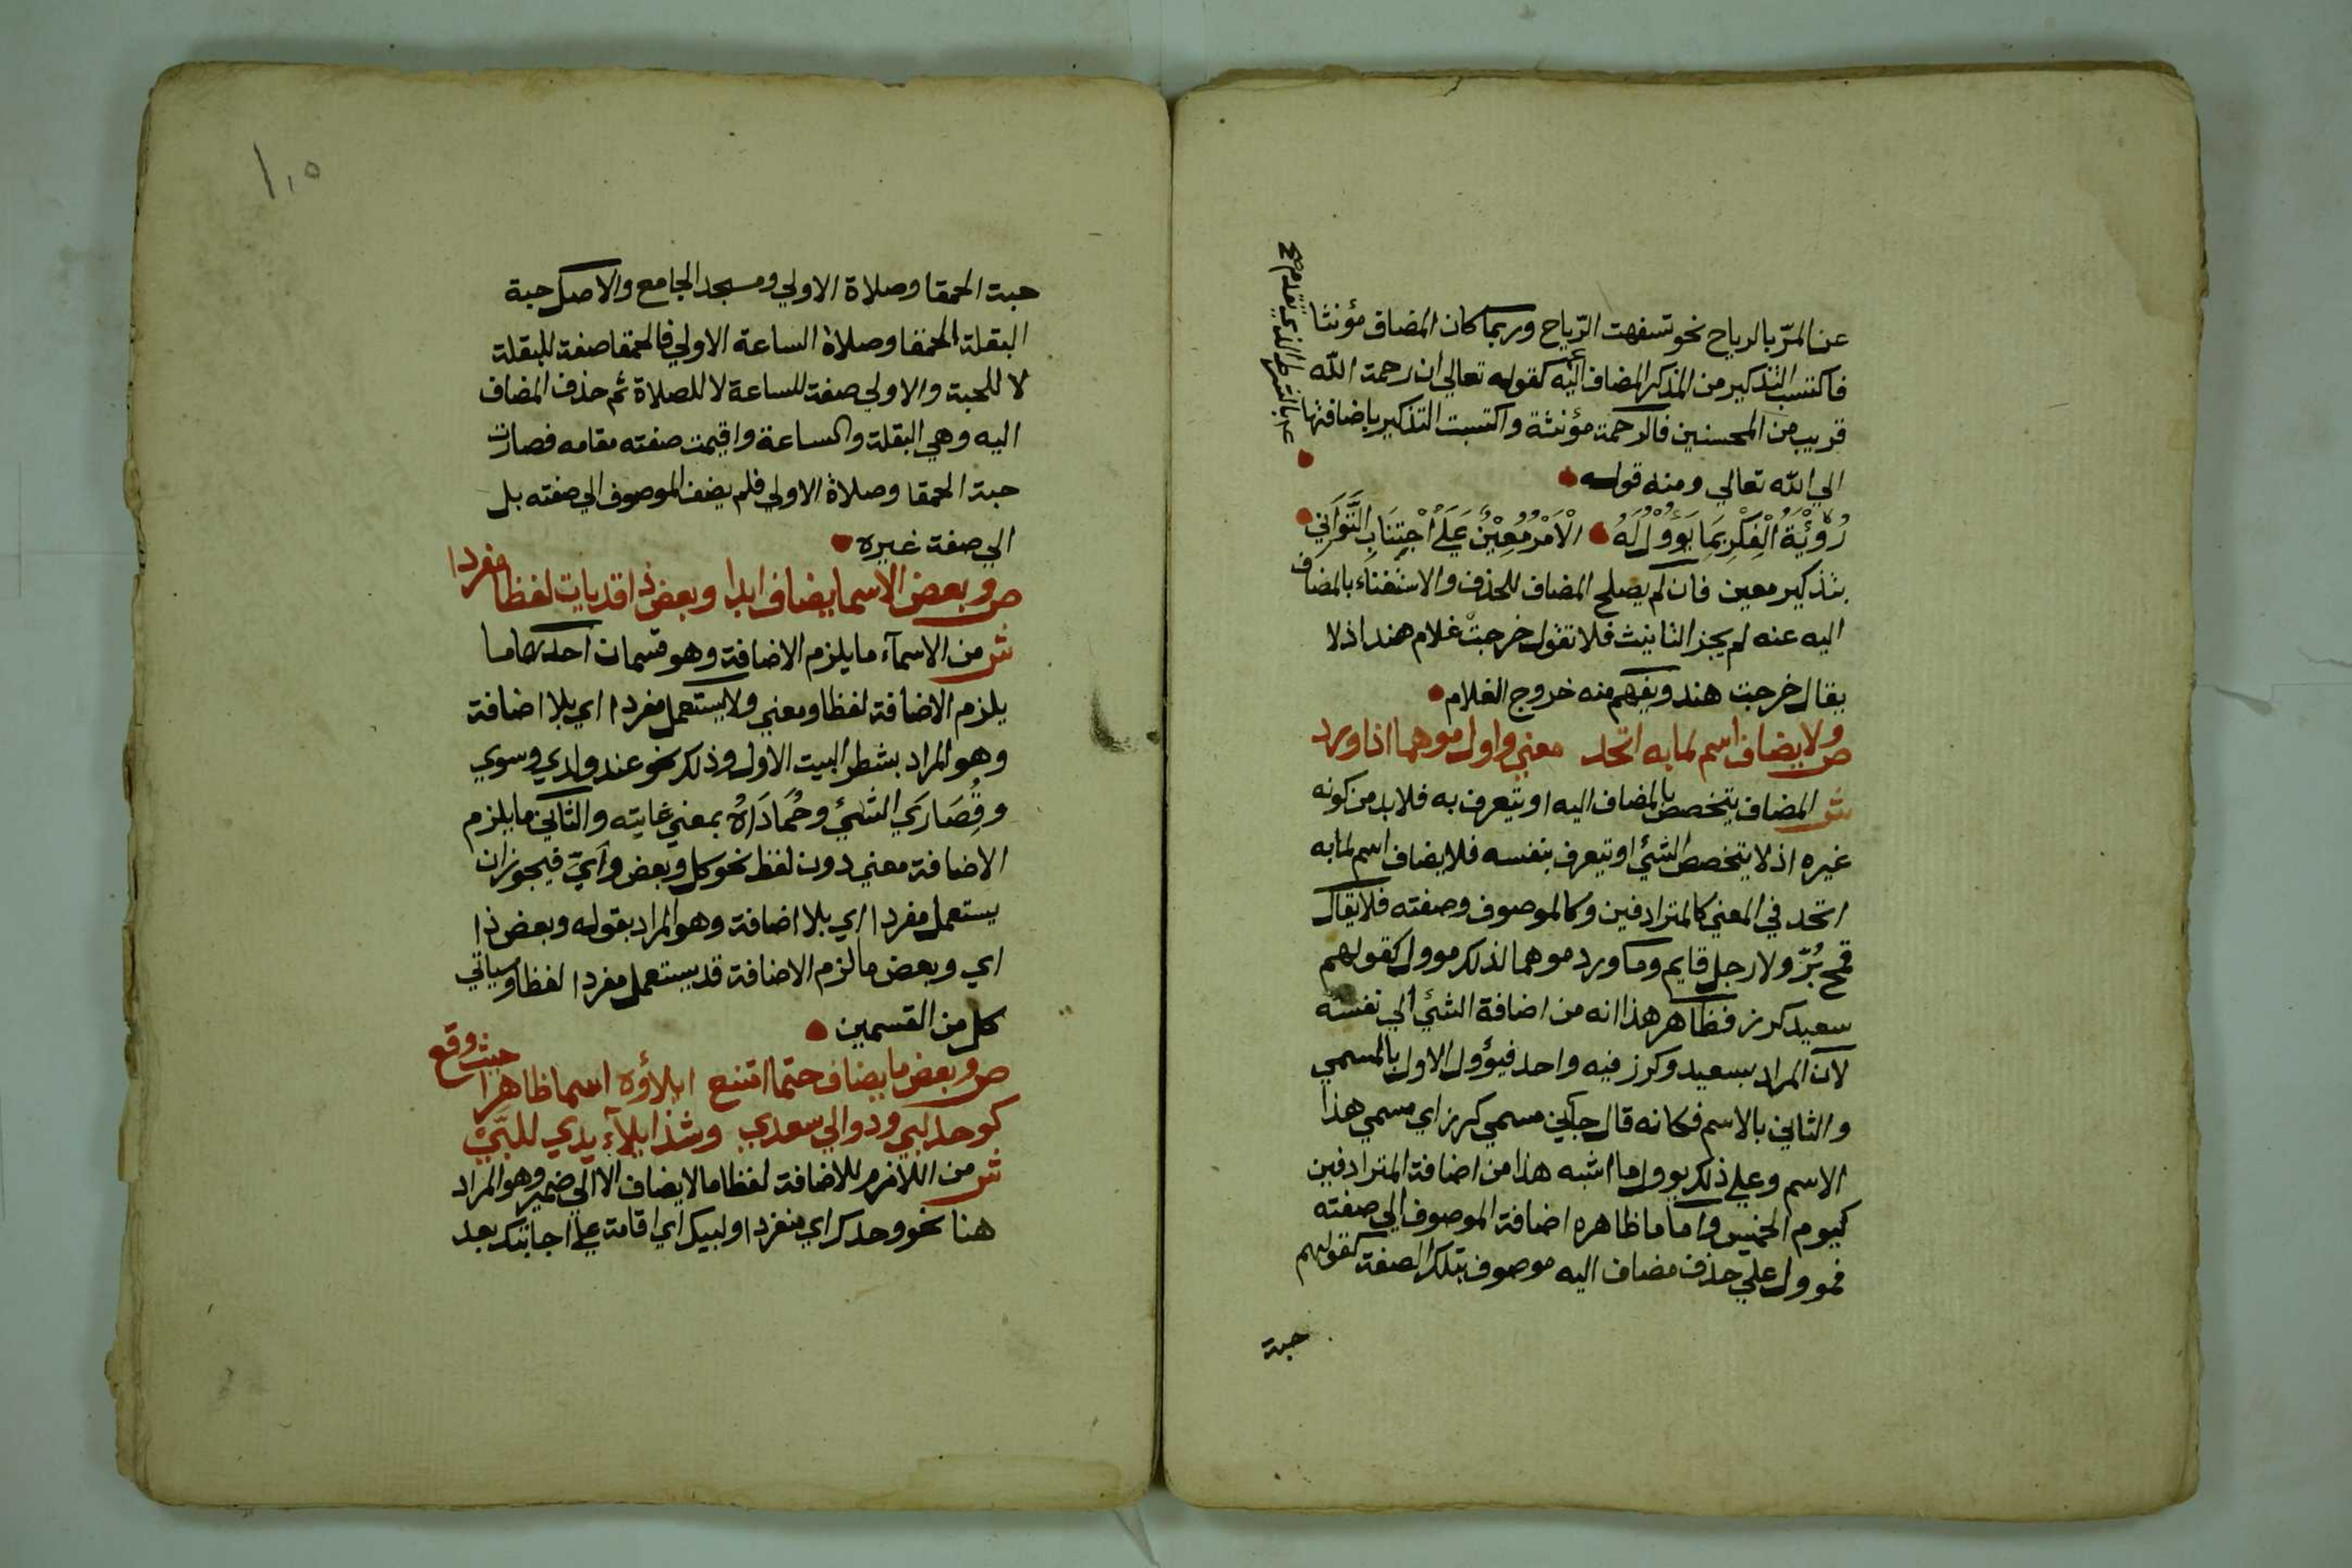 عن المرّ بالرياح نحو تسفهت الرّياح وربما كان المضاف مؤنثا
فاكتسب التذكير من المذكر المضاف اليه كقوله تعالي ان رحمت الله
قريب من المحسنين فالرحمة مؤنثة واكتسبت التذكير باضافتها
الي الله تعالي ومنه قوله
رُؤْيَةُ الْفِكْرِ مَا يَؤُولُ لَهُ الْاَمْرُ مُعِيْنٌ عَلَي اجْتِنَابِ التَّوَانِي
بتذكير معين فان لم يصلح المضاف للحذف والاستغناء بالمضاف
اليه عنه لم يجز التانيث فلا تقول خرجت غلام هند اذ لا
يقال خرجت هند ويفهم منه خروج الغلام
ص ولا يضاف اسم لما به اتحد معني واول موهما اذا ورد
ش المضاف يتخصص بالمضاف اليه او يتعرف به فلا بد من كونه
غيره اذ لا يتخصص الشئ او يتعرف بنفسه فلا يضاف اسم لما به
اتحد في المعني كالمترادفين وكالموصوف وصفته فلا يقال
قمح بُرّ ولا رجل قايم وما ورد موهما لذلك موول كقولهم
سعيد كرز فظاهر هذا انه من اضافة الشئ الي نفسه
لان المراد بسعيد وكرز فيه واحد فيؤول الاول بالمسمي
والثاني بالاسم فكانه قال جاني مسمي كرز اي مسمي هذا
الاسم وعلي ذلك يوول ما اشبه هذا من اضافة المترادفين
كيوم الخميس واما ما ظاهره اضافة الموصوف الي صفته
فموول علي حذف مضاف اليه موصوف بتلك الصفة كقولهم
حبة
بالشرط الذي تقدم صح
١٠٥
حبة الحمقا وصلاة الاولي ومسجد الجامع والاصل حبة
البقلة الحمقا وصلاة الساعة الاولي فالحمقا صفة للبقلة
لا للحبة والاولي صفة للساعة لا للصلاة ثم حذف المضاف
اليه وهي البقلة والساعة واقيمت صفته مقامه فصارت
حبة الحمقا وصلاة الاولي فلم يضف الموصوف الي صفته بل
الي صفة غيره
ص وبعض الاسما يضاف ابدا وبعض ذا قد يات لفظا مفردا
ش من الاسمآء ما يلزم الاضافة وهو قسمان احدهما ما
يلزم الاضافة لفظا ومعني ولا يستعمل مفردا اي بلا اضافة
وهو المراد بشطر البيت الاول وذلك نحو عند ولدي وسوي
وقُصَارَي الشئ وحُمَادَاهُ بمعني غايته والثاني ما يلزم
الاضافة معني دون لفظ نحو كل وبعض وايّ فيجوز ان
يستعمل مفردا اي بلا اضافة وهو المراد بقوله وبعض ذا
اي وبعض ما لزم الاضافة قد يستعمل مفردا لفظا وسياتي
كل من القسمين
ص وبعض ما يضاف حتما امتنع ايلاؤه اسما ظاهرا حيث وقع
كوحد لبي ودوالي سعدي وشذ ايلآء يدي للبّي
ش من اللازم للاضافة لفظا ما لا يضاف الا الي ضمير وهو المراد
هنا نحو وحدك اي منفردا ولبيك اي اقامة علي اجابتك بعد